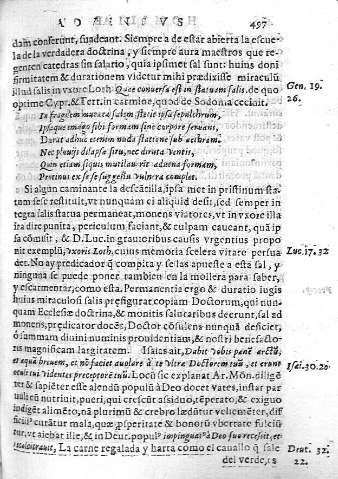 497
dam conserunt, suadeant. Siempre a de estar abierta la escue
la de la verdadera doctrina, y siempre aura maestros que re-
genten catedras sin salario, quia ipsimet sal sunt: huius doni
firmitatem & durationem videtur mihi prædixisse miraculũ
illud salis in vxore Loth. Quæ conuersa est in statuam salis. de quo
optime Cypr. & Tert. in carmine, quod de Sodomia cecinit.
Gen. 19.
26.
In fragilem mutata salem stetit ipsa sepulchrum,
Ipsaque imago sibi formam sine corpore seruans,
Durat adhuc etenim nuda statione sub æthram.
Nec pluuijs dilapsa situ, nec diruta ventis,
Quin etiam siquis mutilauerit aduena formam,
Protinus ex se se suggestu vulnera complet.
Si algun caminante la descãtilla, ipsa met in pristinum sta-
tum se restituit, vt nunquam ei aliquid desit, sed semper in
tegra salis statua permaneat, monens viatores, vt in vxore illa
ira dire punita, periculum faciant, & culpam caueant, quã ip
sa cõmisit, & D. Luc. in grauioribus causis vrgentius propo
nit exemplũ, vxoris Loth, cuius memoria scelera vitare persua
Luc. 17. 32
det. No ay predicador q̃ compita y se las apueste a esta sal, y
ninguna se puede poner tambien en la mollera para saber,
y escarmentar, como esta. Permanentia ergo & duratio iugis
huius miraculosi salis præfigurat copiam Doctorum, qui nun
quam Ecclesiæ doctrina, & monitis salutaribus deerunt, sal ad
monens, prædicator docẽs, Doctor cõsulens nunquã deficiet,
ó summam diuini numinis prouidentiam, & nostri benefacto
ris magnificam largitatem. Isaias ait, Dabit vobis panẽ arctũ,
et aquã breuem, et nõ faciet auolare à te vltra Doctorem tuũ, et erunt
Isai. 30. 20.
oculi tui videntes præceptorẽ tuũ. Locũ sic explanat Ar. Mõn. diligẽ
ter & sapiẽter esse alendũ populũ à Deo docet Vates, instar par
uuli, en nutriunt, pueri, qui crescũt assiduo, tẽperato, & exiguo
indigẽt alimẽto, nã plurimũ & crebro lædũtur vehemẽter, dif
ficil curãtur mala, quæ p̃speritate & bonorũ vbertate cõflã
tur, vt aiebat ille, & in Deut. popul' impinguat' à Deo suo recessit, et
recalcitrauit, La carne regalada y harta como el cauallo q̃ sale
Deut. 32.
22.
del verde, es